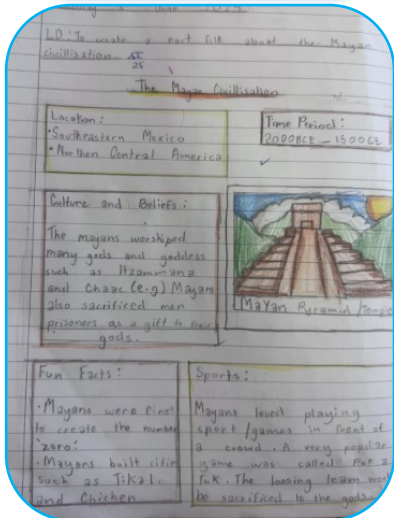 June
LO: To create a fact file about the Mayan
civillisation.
The Mayan Civillisation
Location:
• Southeastern Mexico
• Northen Central America
Time Period:
2000BCE - 1500CE
Culture and Beliefs:
The mayans worshiped
many gods and goddess
such as Itzammana
and Chaac (e.g) Mayans
also sacrificed men
prisoners as a gift to their
gods.
Mayan Pyramid/Temple
Fun Facts:
• Mayans were first
to create the number
'zero'.
• Mayans built cities
such as Tikal
and Chichen
Sports:
Mayans loved playing
sport/games in front of
a crowd. A very popular
game was called Pok a
Tok. The loosing team
be sacrificed to the gods.